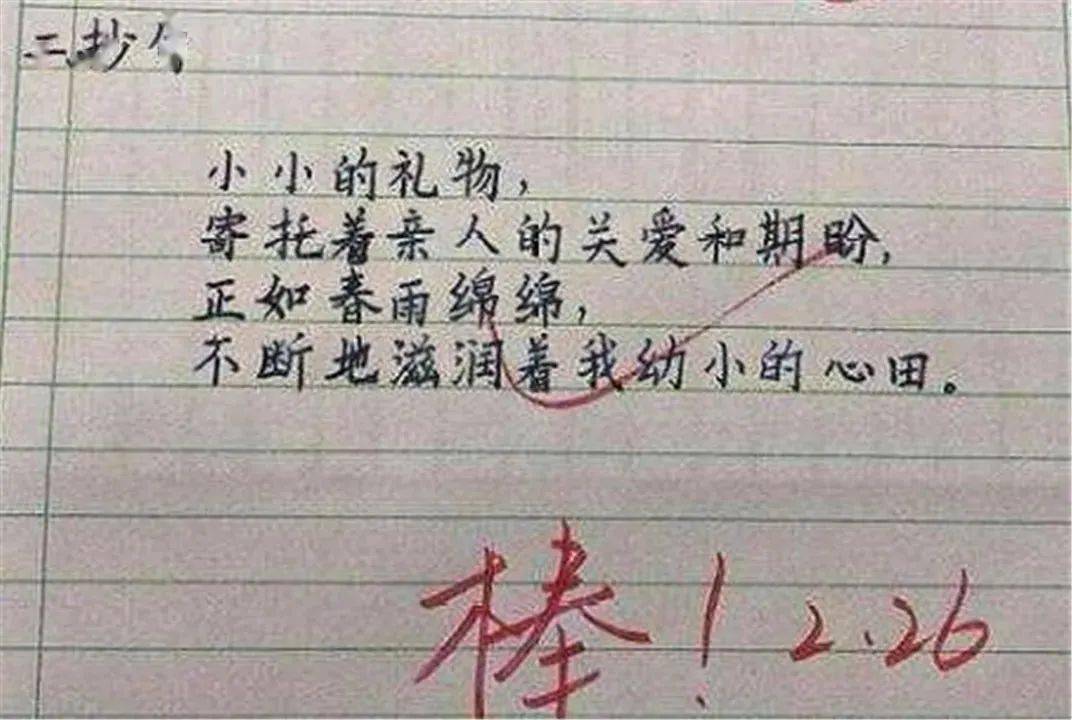 二、抄
小小的礼物，
寄托着亲人的关爱和期盼，
正如春雨绵绵，
不断地滋润着我幼小的心田。
棒！2.26